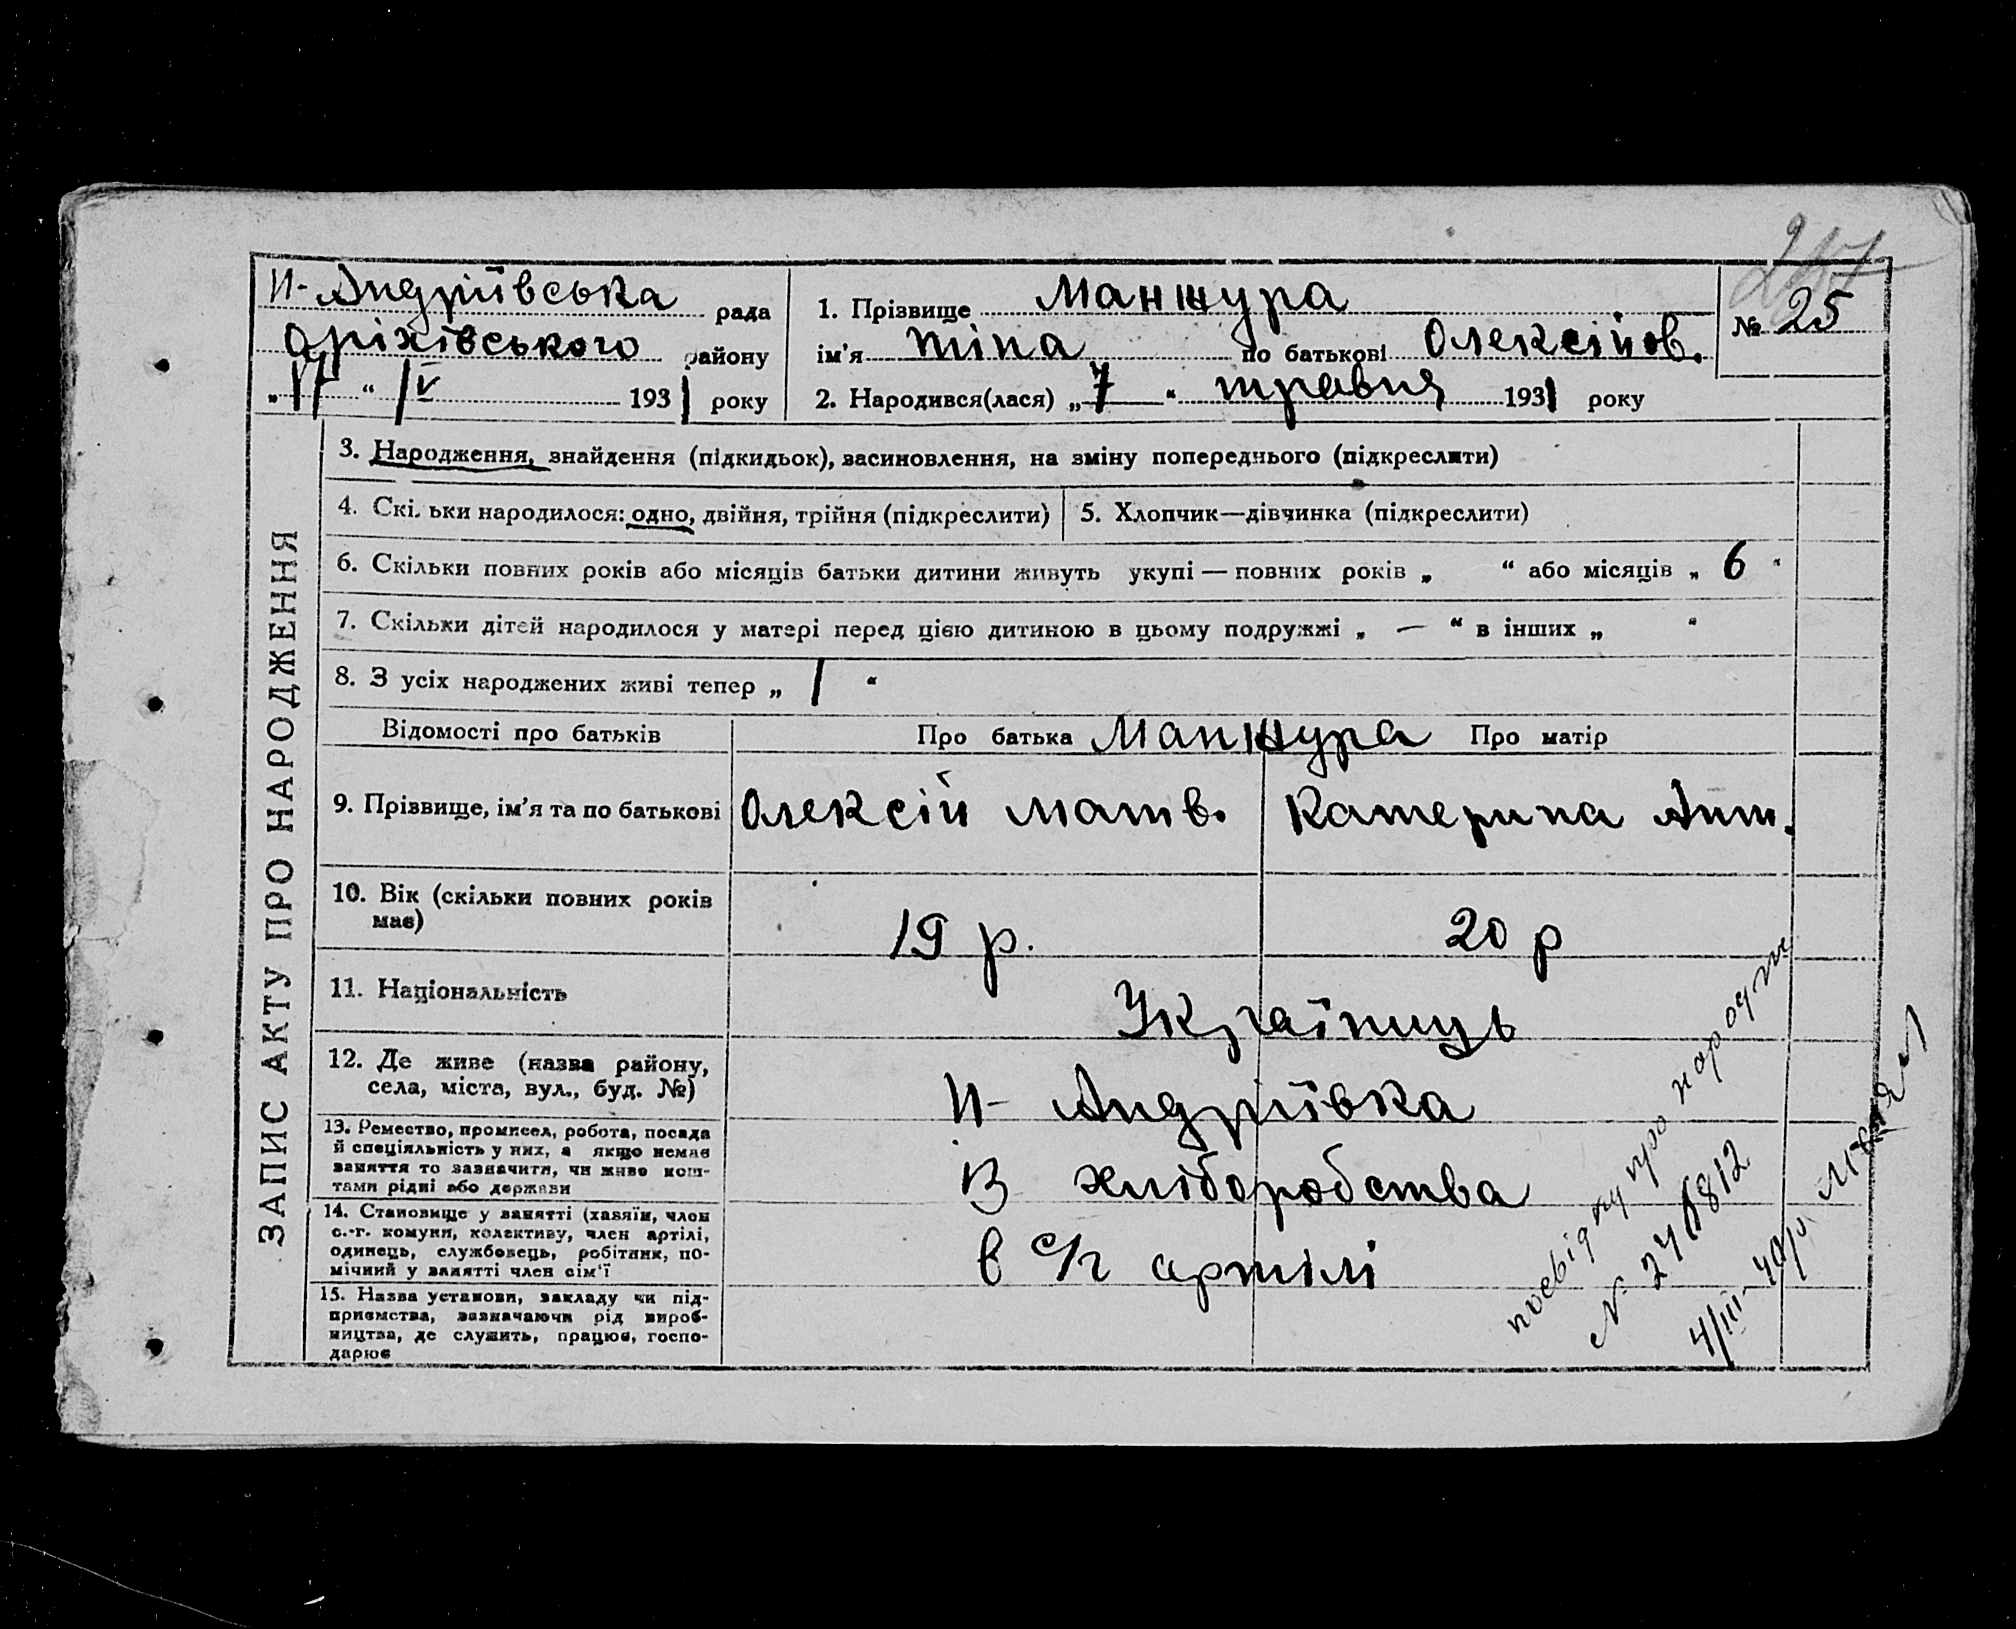 Н-Андріївська рада
Оріхівського району
„17“ IV 1931 року
1. Прізвище Манжура
ім’я Тіна по батькові Олексіїв.
2. Народився(лася) „7“ травня 1931 року
№ 25
ЗАПИС АКТУ ПРО НАРОДЖЕННЯ
3. Народження, знайдення (підкидьок), засиновлення, на зміну попереднього (підкреслити)
4. Скільки народилося: одно, двійня, трійня (підкреслити)
5. Хлопчик—дівчинка (підкреслити)
6. Скільки повних років або місяців батьки дитини живуть укупі — повних років „ “ або місяців „ 6 “
7. Скільки дітей народилося у матері перед цією дитиною в цьому подружжі „ — “ в інших „ “
8. З усіх народжених живі тепер „ 1 “
Відомості про батьків
Про батька Манжура Про матір
9. Прізвище, ім’я та по батькові
Олексій Матв.
Катерина Ант.
10. Вік (скільки повних років
має)
19 р.
20 р
11. Національність
Українць
12. Де живе (назва району,
села, міста, вул., буд. №)
Н- Андріївка
13. Ремество, промисел, робота, посада
й спеціяльність у них, а якщо немає
заняття то зазначити, чи живе кош-
тами рідні або держави
Із хліборобства
14. Становище у занятті (хазяїн, член
с.-г. комуни, колективу, член артілі,
одинець, службовець, робітник, по-
мічний у занятті член сім’ї
в с/г артілі
15. Назва установи, закладу чи під-
приємства, зазначаючи рід вироб-
ництва, де служить, працює, госпо-
дарює
посвідку про народж
№ 24
4/III-40р.